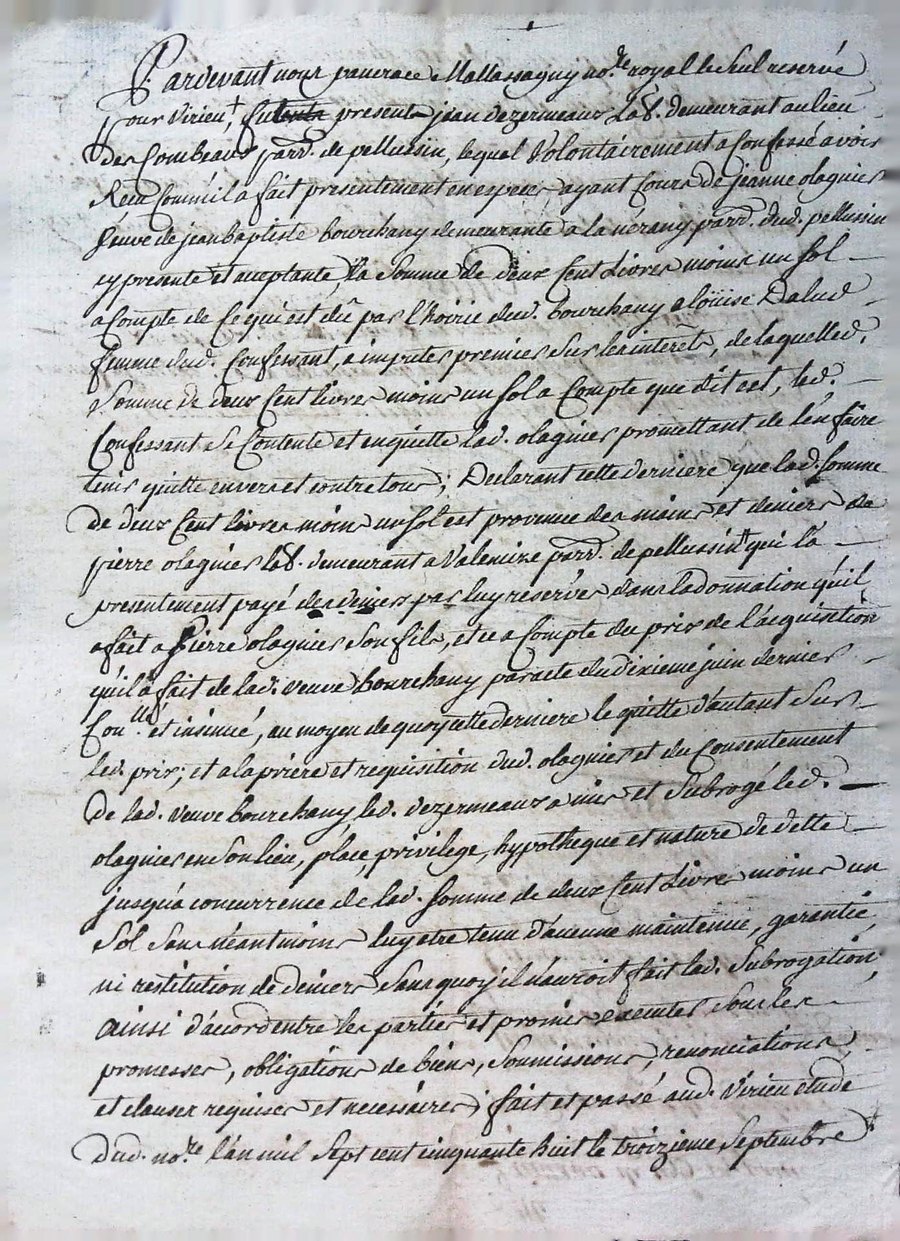 Pardevant nous pancrace Mallassagny no.re royal le seul reservé
pour virieu, fut present jean dezermeaux lab. demeurant au lieu
des Combeaux parr. de pellussin, lequel volontairement a Confessé avoir
Receu Comm'il a fait presentement en especes ayant Cours de jeanne olagnier
veuve de jean baptiste bourchany demeurante a la nérany parr. dud. pellussin
cy presente et acceptante, la somme de deux Cent Livres moins un sol
a Compte de Ce qui est dû par l'hoirie dud. bourchany a loüise Dalud
femme dud. Confessant, a imputer premier sur les interêts, de laquelle d.
somme de deux Cent livres moins un sol a Compte que dit est, led.
Confessant se Contente et en quitte lad. olagnier promettant de l'en faire
tenir quitte envers et contre tous; Declarant cette derniere que lad. somme
de deux Cent livres moins un sol est provenüe des mains et deniers de
pierre olagnier lab. demeurant a Valemire parr. de pellussin qui l'a
presentement payé des deniers par luy reservés dans la donnation qu'il
a fait a Pierre olagnier son fils, et ce a Compte du prix de l'acquisition
qu'il a fait de lad. veuve bourchany par acte du dixieme juin dernier
Con.llé et insinué, au moyen de quoy cette derniere le quitte d'autant sur
led. prix; et a la priere et requisition dud. olagnier et du Consentement
De lad. veuve bourchany led. dezermeaux a mis et subrogé led.
olagnier en son lieu, place, privilege, hypotheque et nature de dette
jusqu'a concurrence de lad. somme de deux Cent Livres moins un
sol sans néantmoins luy etre tenu d'aucune maintenüe, garantie,
ni restitution de deniers sans quoy il n'auroit fait lad. subrogation
ainsi d'acord entre les parties et promis executer sous les
promesses, obligations de biens, soumissions, renonciations,
et clauses requises et necessaires; fait et passé aud. virieu etude
dud. no.re l'an mil sept cent cinquante huit le troizieme septembre